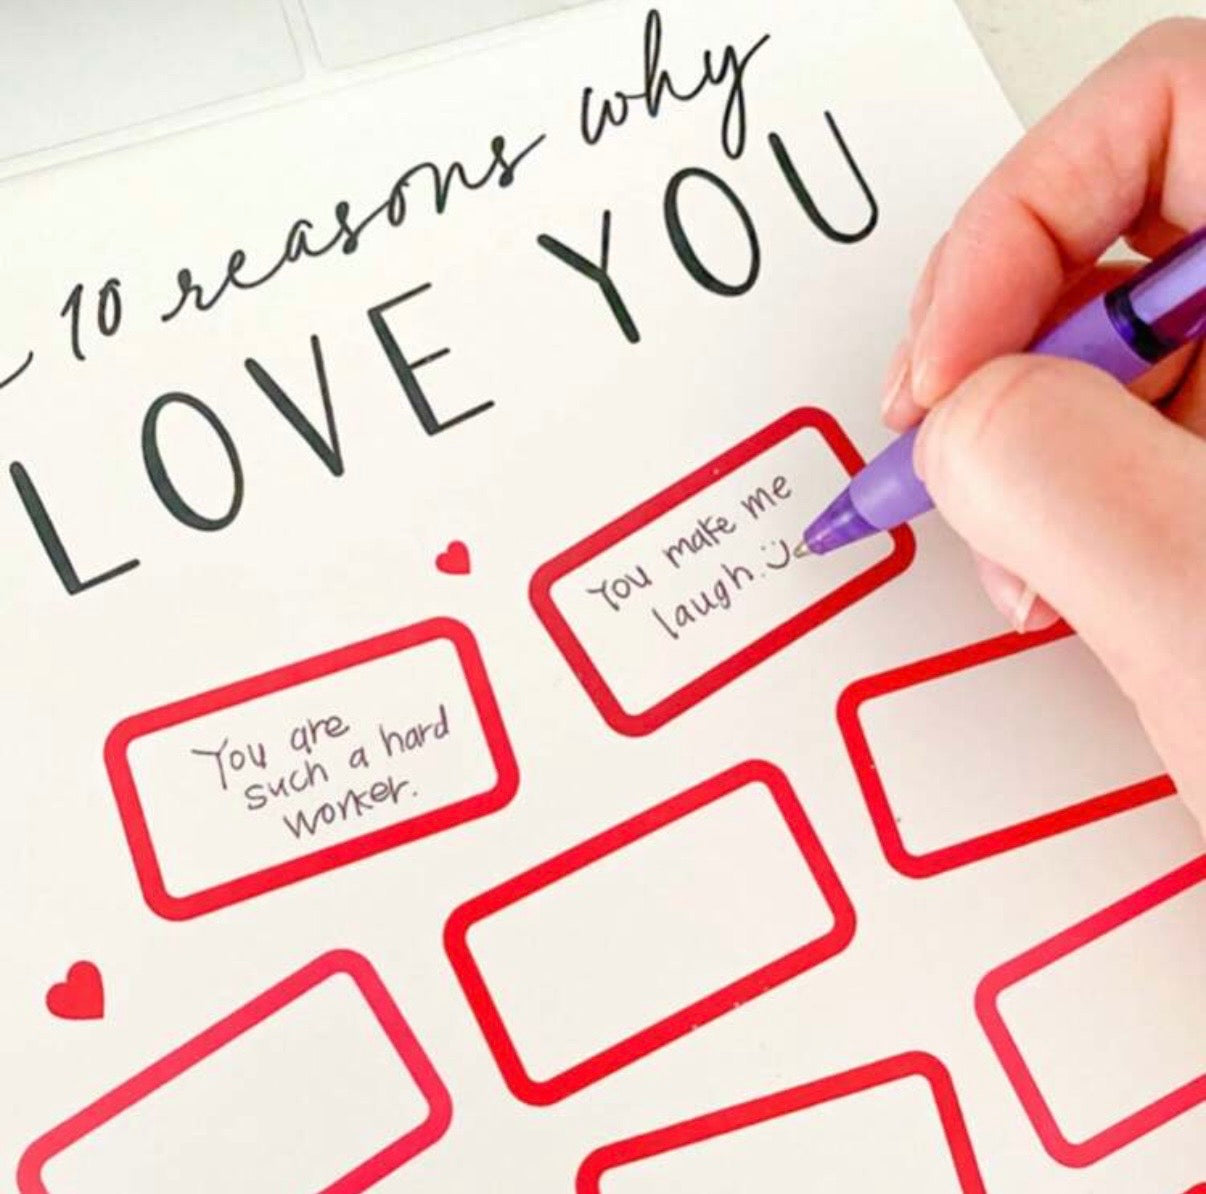 10 reasons why
LOVE YOU
You make me
laugh. :)
You are
such a hard
worker.